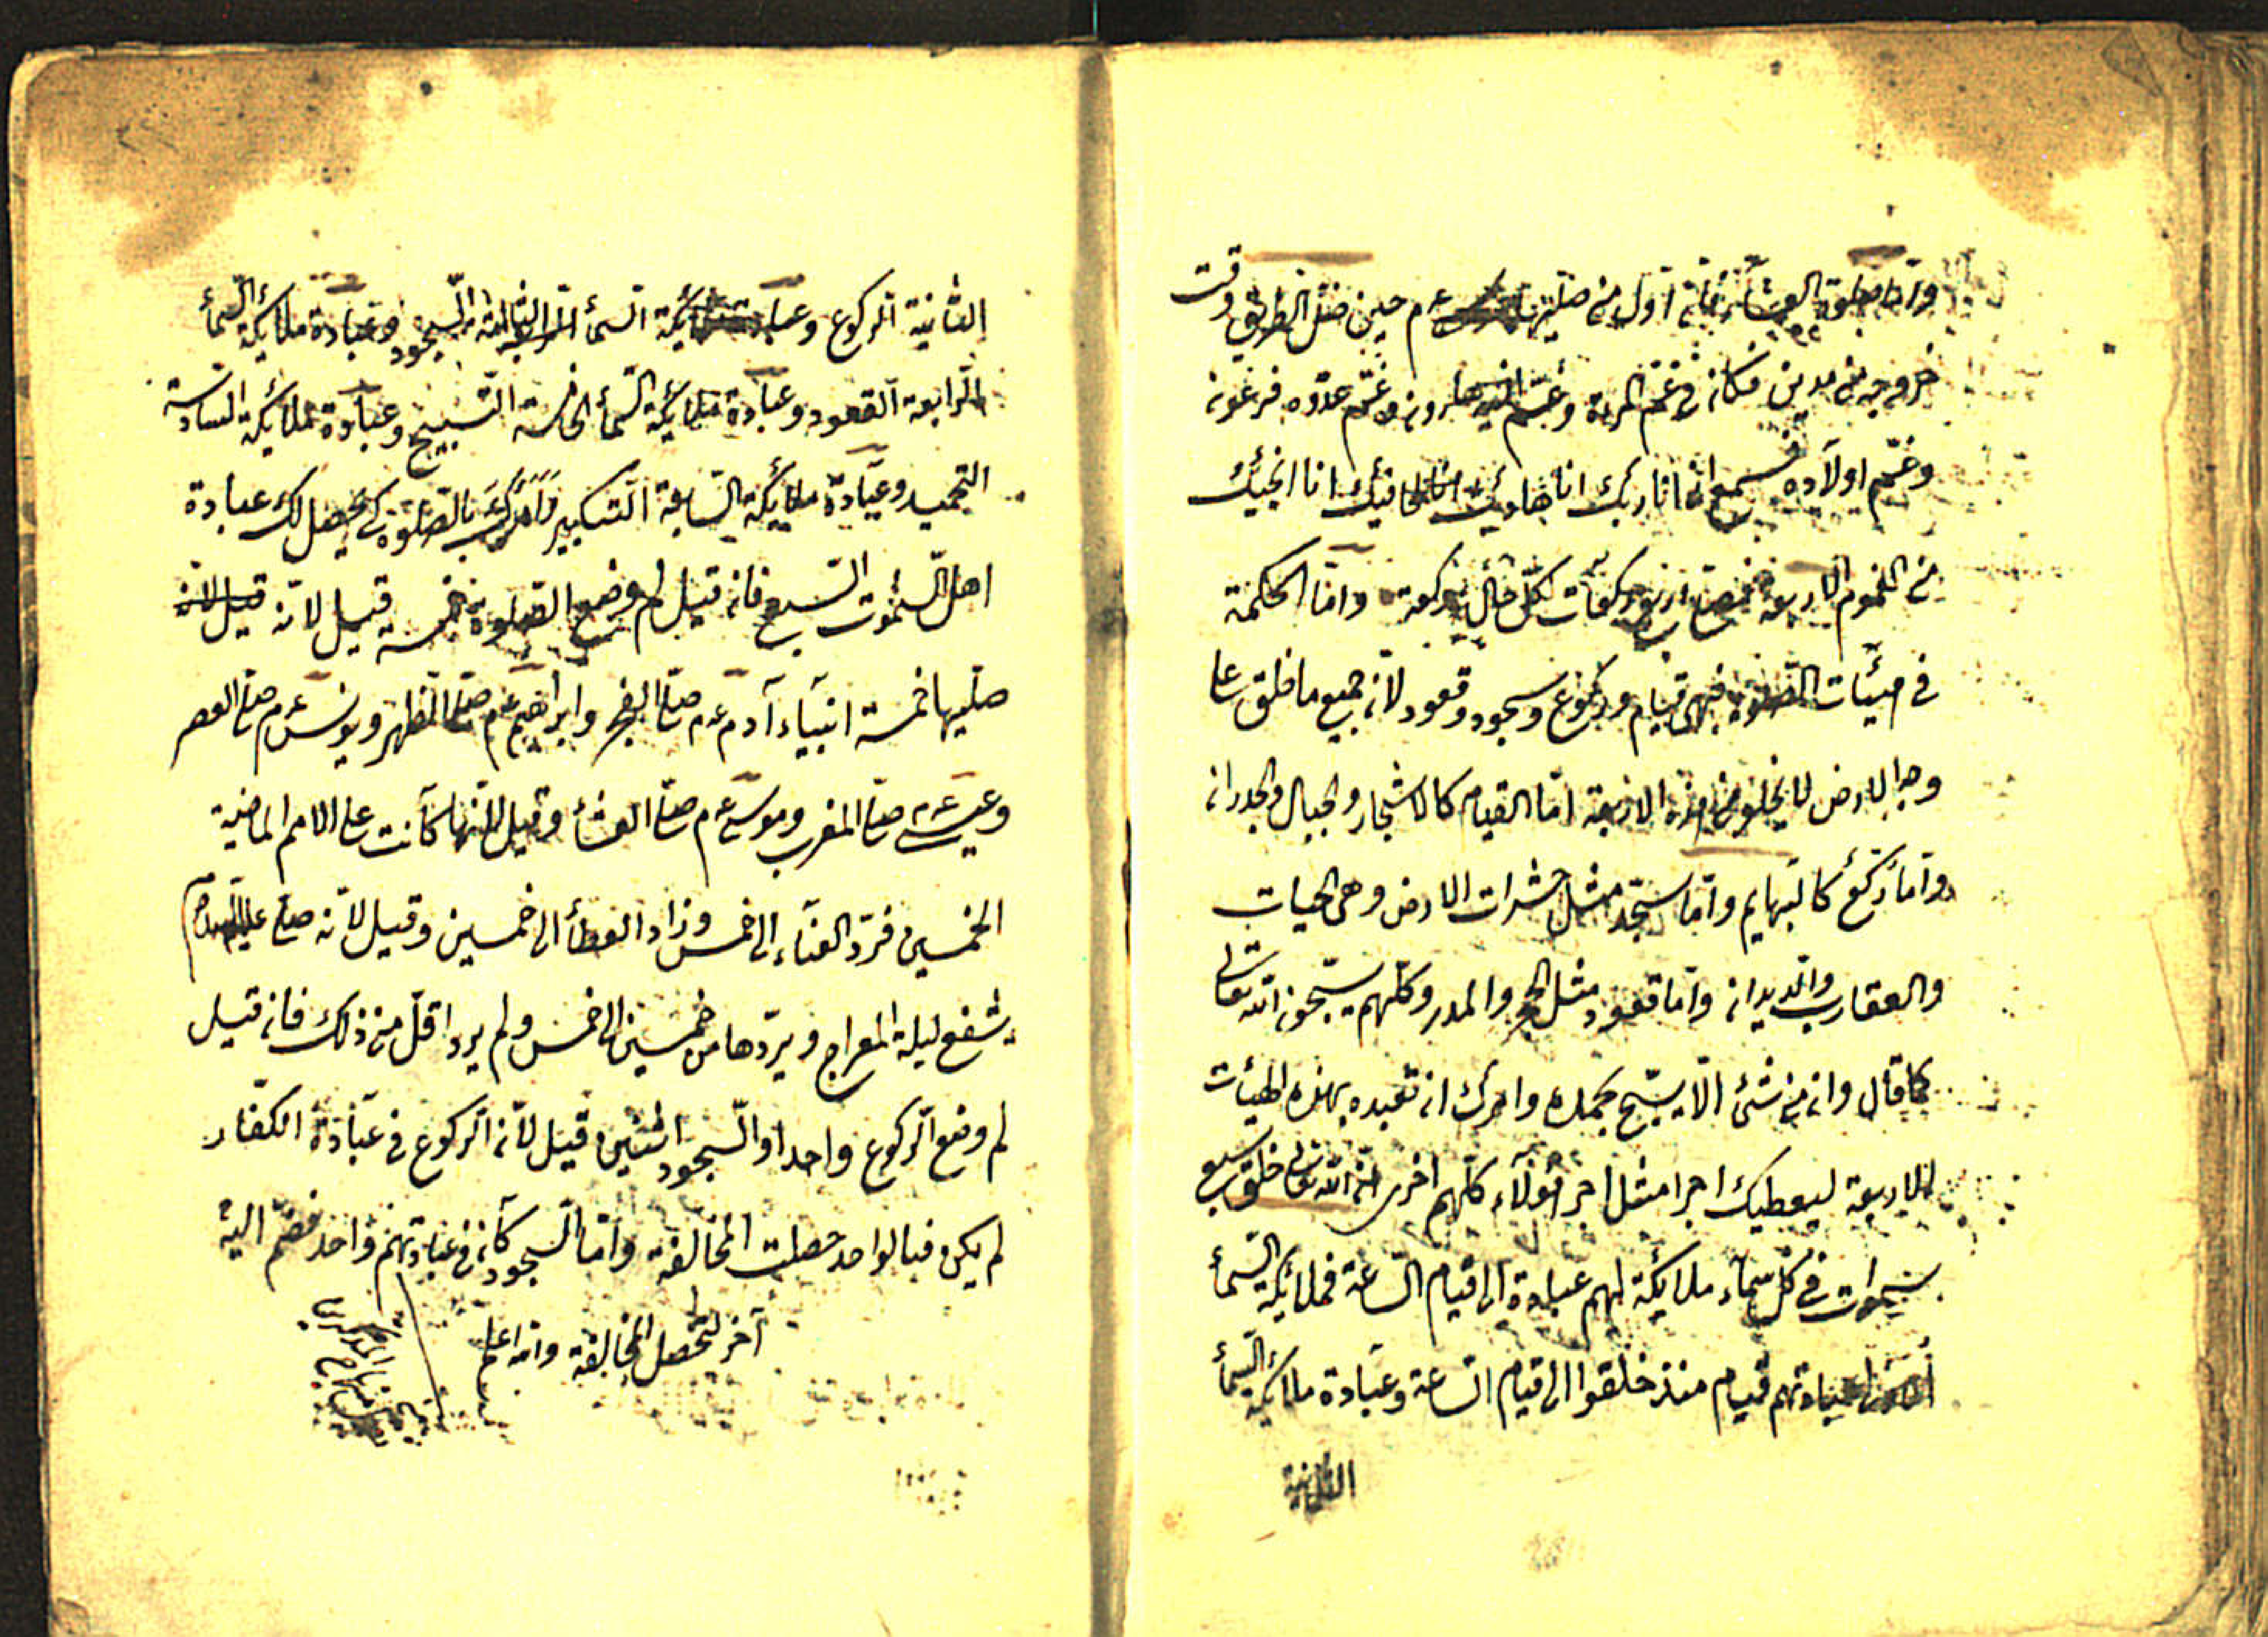 واما صلوة العشاء فانه اول من صليها موسى ع م حين ضل الطريق وقت
خروجه من مدين فكان فى غم المرءة وغم اخيه هارون وغم عدوه فرعون
وغم اولاده فسمع انى انا ربك انا هاديك انا كافيك انا انجيك
من الغموم الاربعة فصلى اربع ركعات لكل حال ركعة واما الحكمة
فى هيئات الصلوة فهى قيام وركوع وسجود وقعود لان جميع ما خلق على
وجه الارض لا يخلو من هذه الاربعة اما القيام كالاشجار والجبال والجدران
واما ركع كالبهايم واما سجد مثل حشرات الارض وهى الحيات
والعقارب والديدان واما قعود مثل الحجر والمدر وكلهم يسبحون الله تعالى
كما قال وان من شئ الا يسبح بحمده وامرك ان تعبده بهذه الهيئات
الاربعة ليعطيك اجرا مثل اجر هؤلاء كلهم اخرى ان الله تعالى خلق سبع
سموات فى كل سماء ملائكة لهم عبادة الى قيام الساعة فملائكة السماء
عبادتهم قيام منذ خلقوا الى قيام الساعة وعبادة ملائكة السماء
الثانية
الثانية الركوع وعبادة ملائكة السماء الثالثة السجود وعبادة ملائكة السماء
الرابعة القعود وعبادة ملائكة السماء الخامسة التسبيح وعبادة ملائكة السادسة
التحميد وعبادة ملائكة السابعة التكبير وامرك بالصلوة كى يحصل لك عبادة
اهل السموت السبع فان قيل لم وضع الصلوة خمسة قيل لانه قيل لانه
صليها خمسة انبياء آدم ع م صلى الفجر وابراهيم ع م صلى الظهر ويونس ع م صلى العصر
وعيسى ع م صلى المغرب وموسى ع م صلى العشاء وقيل لانها كانت على الامم الماضية
الخمسين فرد العناء الى خمس وزاد العطاء الى خمسين وقيل لانه صلى عليه السلام
يشفع ليلة المعراج ويردها من خمسين الى خمس ولم يرد اقل من ذلك فان قيل
لم وضع الركوع واحدا والسجود اثنين قيل لان الركوع فى عبادة الكفار
لم يكن فبالواحد حصلت المخالفة واما السجود كان فى عبادتهم واحد فضم اليه
آخر لتحصل المخالفة والله اعلم